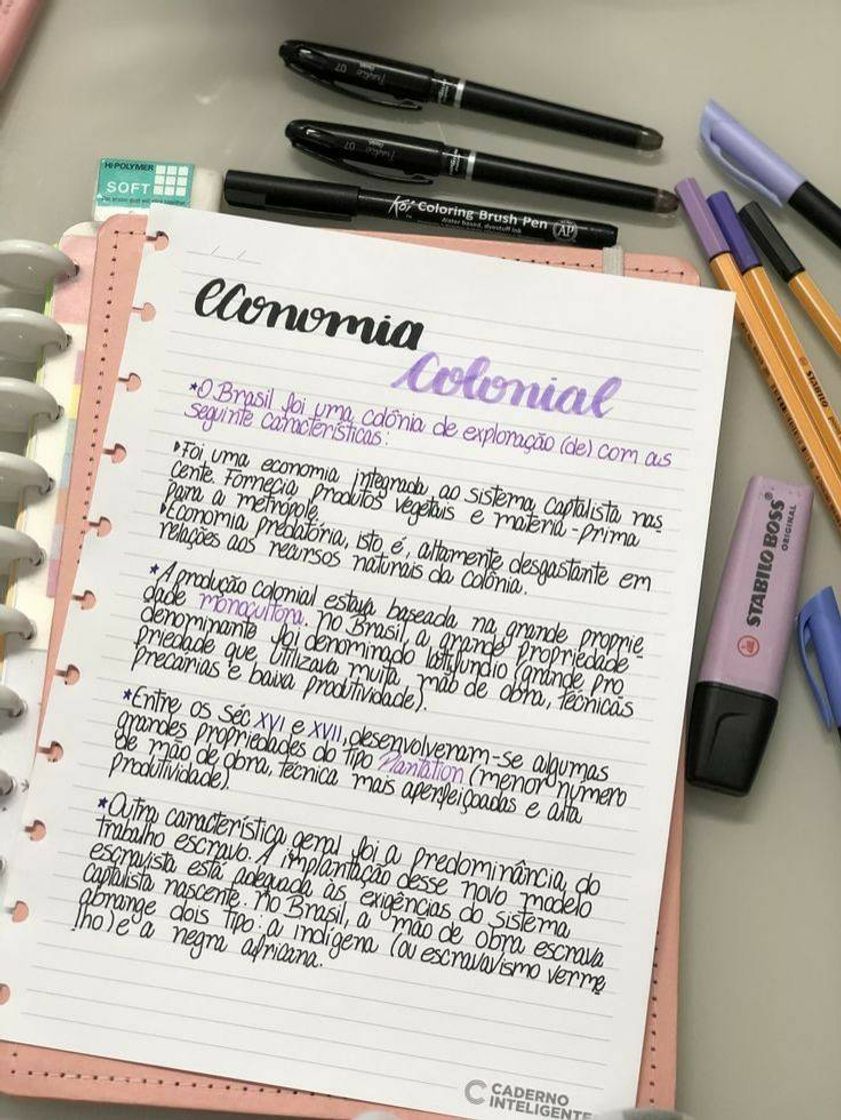 HI-POLYMER
SOFT
Koi Coloring Brush Pen
Water based, dyestuff ink
AP
economia
Colonial
*O Brasil foi uma colônia de exploração (de) com as
seguinte características:
Foi uma economia integrada ao sistema captalista nas
cente. Fornecia produtos vegetais e materia-prima
para a metrópole.
Economia predatória, isto é, altamente desgastante em
relações aos recursos naturais da colônia.
*A produção colonial estava baseada na grande proprie
dade monocultora. No Brasil, a grande propriedade
denominante foi denominado latifundio (grande pro
priedade que utilizava muita mão de obra, técnicas
precárias e baixa produtividade).
*Entre os séc XVI e XVII, desenvolveram-se algumas
grandes propriedades do tipo Plantation (menor número
de mão de obra, técnica mais aperfeiçoadas e alta
produtividade).
*Outra característica geral foi a predominância do
trabalho escravo. A implantação desse novo modelo
escravista está adequada às exigências do sistema
captalista nascente. No Brasil, a mão de obra escrava
abrange dois tipo: a indígena (ou escravavismo verme
lho) e a negra africana.
CADERNO
INTELIGENTE
STABILO BOSS
ORIGINAL
STABILO